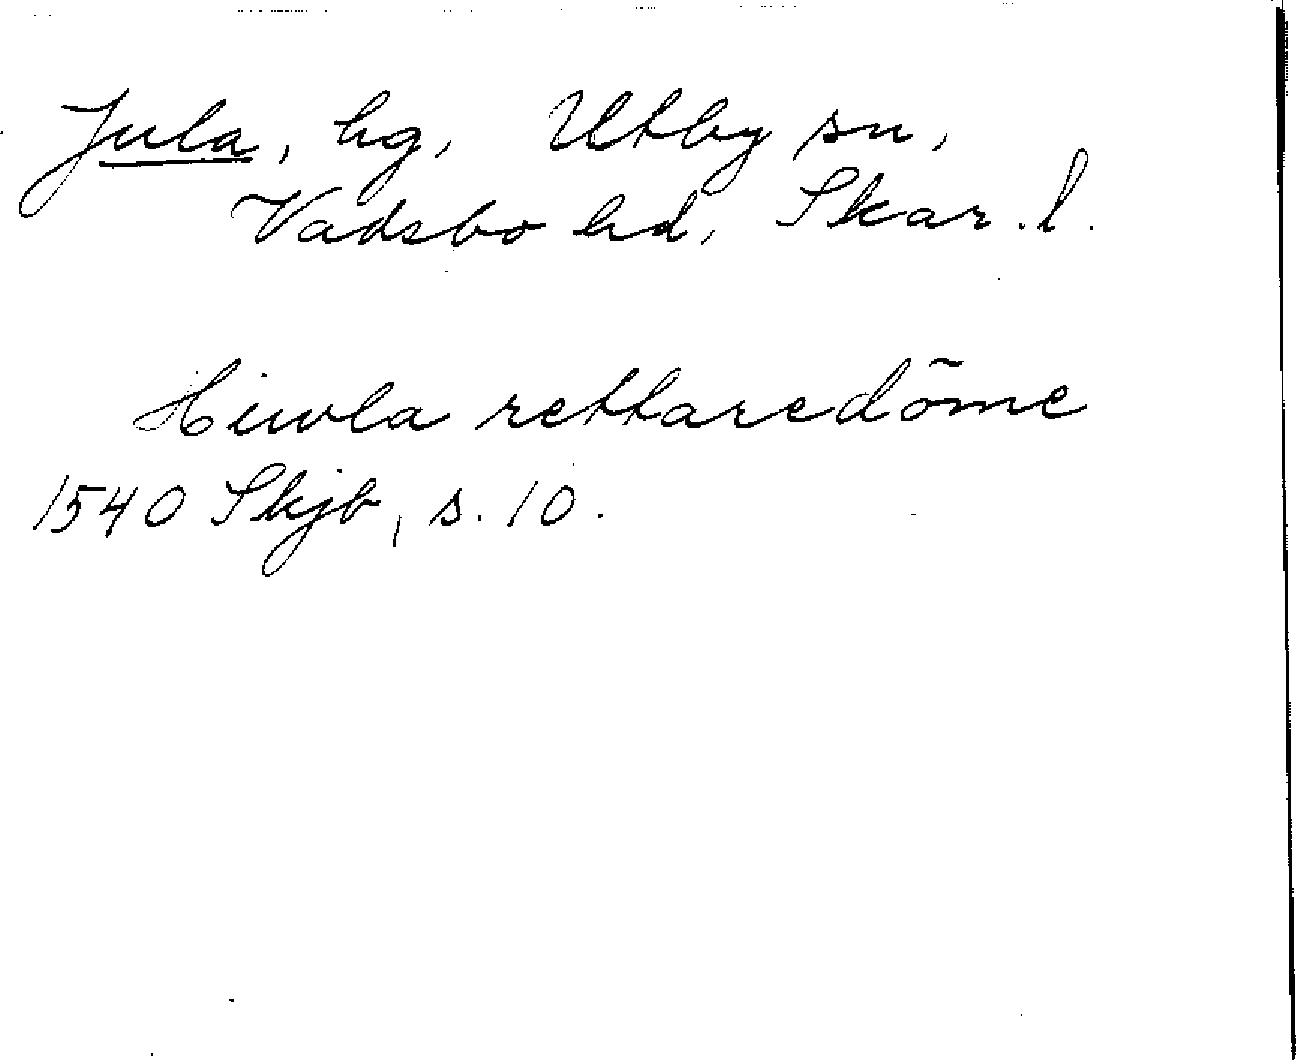 Jula, hg, Utby sn,
Vadsbo hd, Skar.l.
Hiwla rettaredõme
1540 Skjb, s. 10.